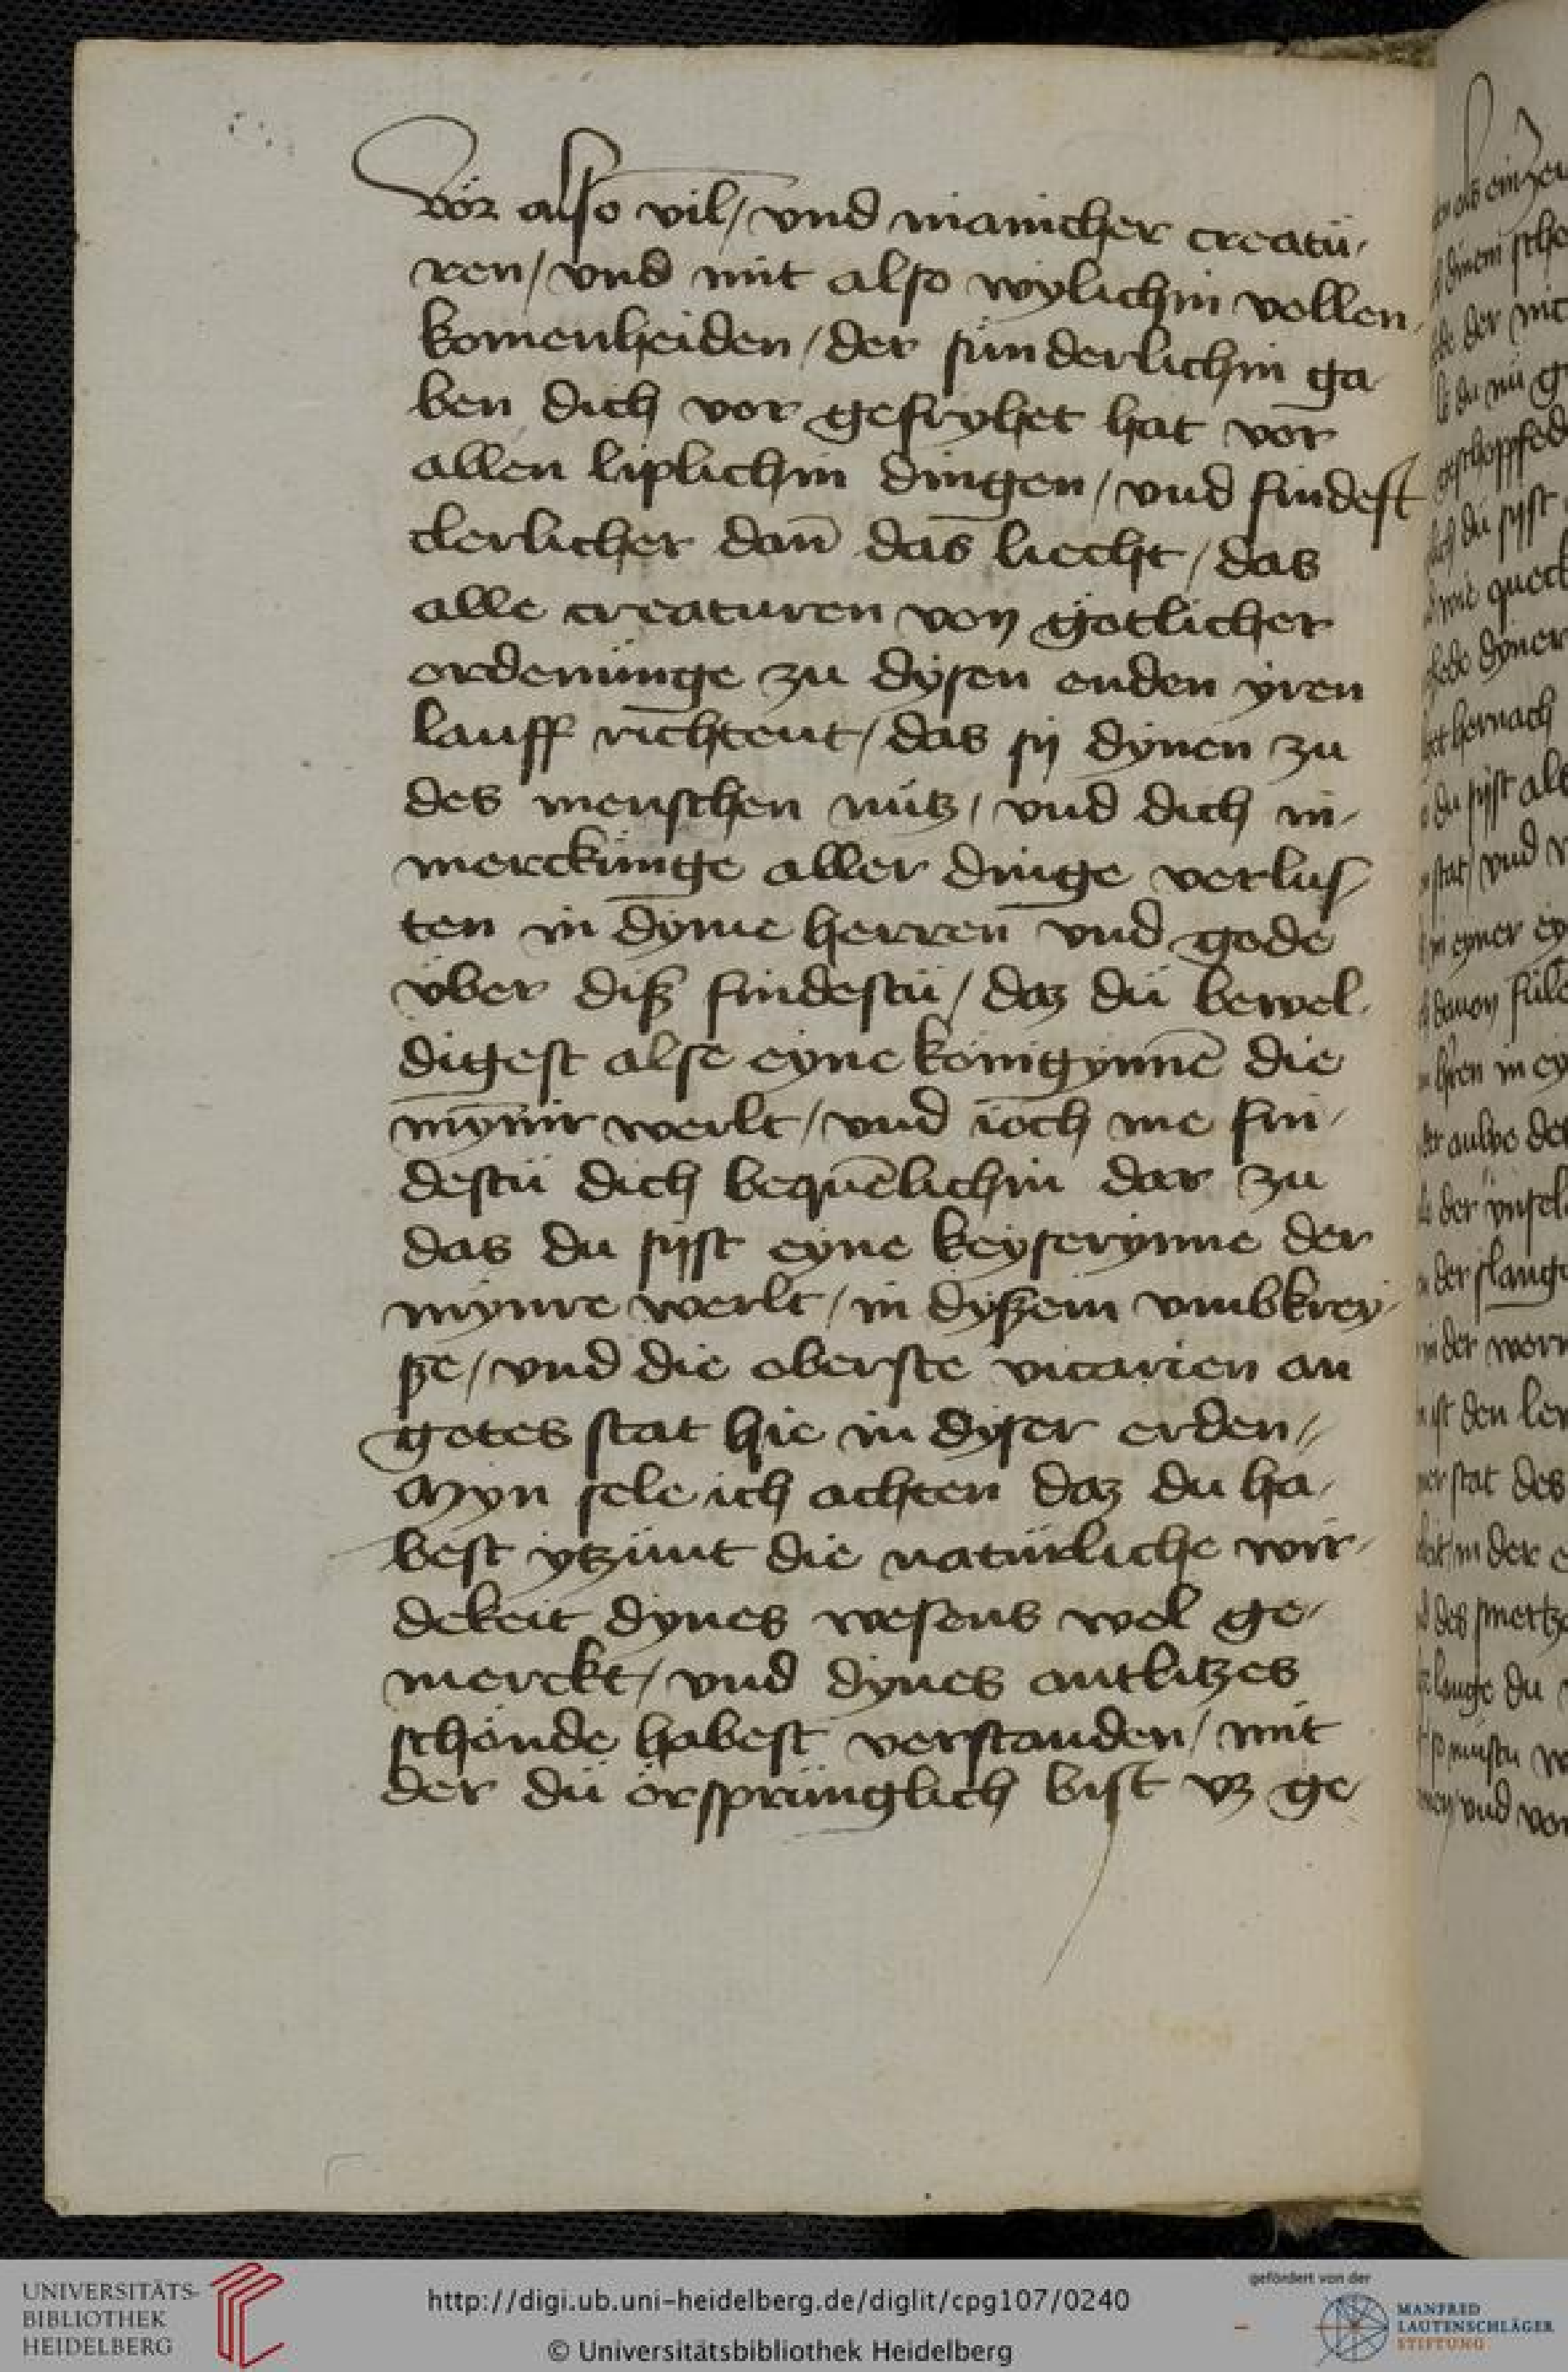 vör also vil / vnd manicher creatü-
ren / vnd mit also wylichin vollen-
komenheiden / der sunderlichin ga
ben dich vor gefryhet hat vor
allen liplichin dingen / vnd findest
clerlicher dan̄ das liecht / das
alle creaturen von götlicher
ordenunge zu dysen enden yren
lauff richtent / das sij dynen zu
des menschen nütz / vnd dich in-
merckunge aller dinge verlus-
ten in dyme herren vnd gode
vber diß findestü / daz dü bewel-
digest alse eyne königynnē die
mynnr werlt / vnd ioch me fin-
destü dich bequēlichin dar zu
das du sijst eyne keyserynne der
mynre werlt / in dyßem vmbkrey-
ße / vnd die oberste vicarien an
gotes stat hie in dyser erden //
Myn sele ich achten daz du ha-
best ytzünt die natürliche wir-
dekeit dynes wesens wel ge-
merckt / vnd dynes antlitzes
schönde habest verstanden / mit
der dü örsprünglich bist vz ge-
UNIVERSITÄTS-
BIBLIOTHEK
HEIDELBERG
http://digi.ub.uni-heidelberg.de/diglit/cpg107/0240
© Universitätsbibliothek Heidelberg
gefördert von der
MANFRED
LAUTENSCHLÄGER
STIFTUNG